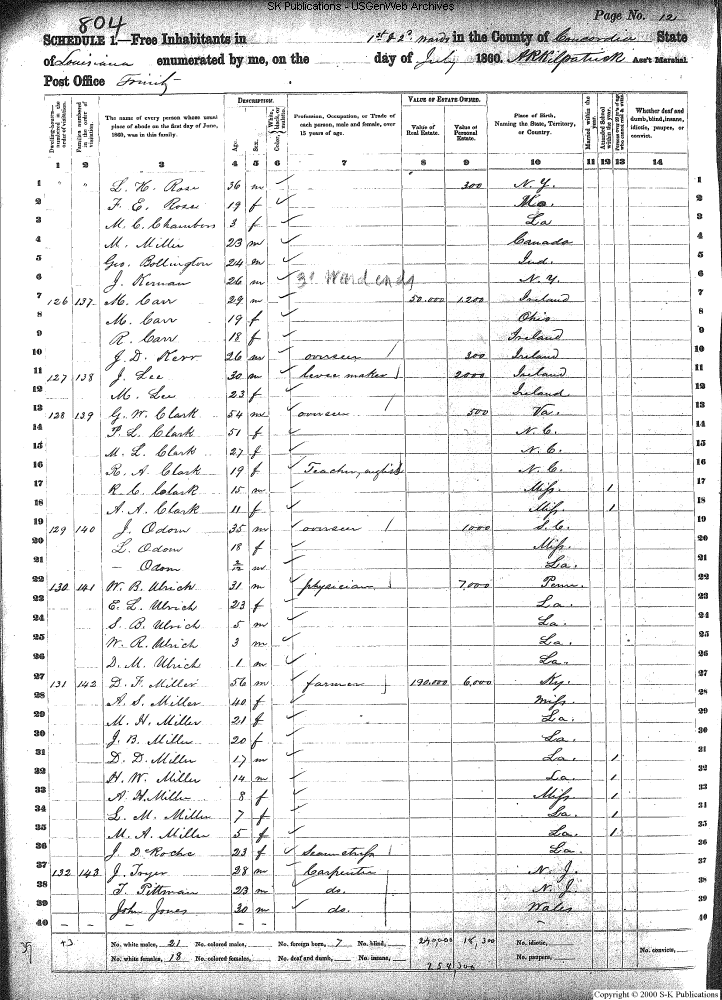 SK Publications - USGenWeb Archives
804
Page No. 12
SCHEDULE 1.—Free Inhabitants in 1st & 2d Wards in the County of Concordia State
of Louisiana enumerated by me, on the day of July 1860. ARKilpatrick Ass't Marshal.
Post Office Trinity
Dwelling-houses— numbered in the order of visitation.
Families numbered in the order of visitation.
The name of every person whose usual place of abode on the first day of June, 1860, was in this family.
DESCRIPTION.
Age.
Sex.
Color, White, black, or mulatto.
Profession, Occupation, or Trade of each person, male and female, over 15 years of age.
VALUE OF ESTATE OWNED.
Value of Real Estate.
Value of Personal Estate.
Place of Birth, Naming the State, Territory, or Country.
Married within the year.
Attended School within the year.
Whether deaf and dumb, blind, insane, idiotic, pauper, or convict.
1 2 3 4 5 6 7 8 9 10 11 12 13 14
1 " " L. H. Rose 36 m 300 N. Y. 1
2 F. E. Rose 19 f Mo. 2
3 M. C. Chambers 3 f La 3
4 M. Miller 23 m Canada 4
5 Geo. Bollington 24 m Ind. 5
6 J. Kernan 26 m 3d Ward ends N. Y. 6
7 126 137 M. Carr 29 m 50.000 1.200 Ireland 7
8 M. Carr 19 f Ohio 8
9 R. Carr 18 f Ireland 9
10 J. D. Kerr 26 m overseer / 300 Ireland 10
11 127 138 J. Lee 30 m levee maker 2000 Ireland 11
12 M. Lee 23 f Ireland 12
13 128 139 G. W. Clark 54 m overseer / 500 Va. 13
14 P. L. Clark 51 f N. C. 14
15 M. L. Clark 27 f N. C. 15
16 R. A. Clark 19 f Teacher, english N. C. 16
17 R. C. Clark 15 m Miss. 1 17
18 A. A. Clark 11 f Miss. 1 18
19 129 140 J. Odom 35 m overseer / 1000 S. C. 19
20 L. Odom 18 f Miss. 20
21 — Odom 2/12 m La. 21
22 130 141 W. B. Ulrich 31 m physician 7,000 Penn. 22
23 E. L. Ulrich 23 f La. 23
24 S. B. Ulrich 5 m La. 24
25 W. R. Ulrich 3 m La. 25
26 D. M. Ulrich 1 m La. 26
27 131 142 D. F. Miller 56 m farmer 190.000 6,000 Ky. 27
28 A. S. Miller 40 f Miss. 28
29 M. H. Miller 21 f La. 29
30 J. B. Miller 20 f La. 30
31 D. D. Miller 17 m La. 1 31
32 H. W. Miller 14 m La. 1 32
33 A. H. Miller 8 f Miss. 1 33
34 L. M. Miller 7 f La. 1 34
35 M. A. Miller 5 f La. 1 35
36 J. D. Roche 23 f Seamstress La. 36
37 132 143 28 m Carpenter N. J. 37
38 T. Pittman 23 m do. N. J. 38
39 John Jones 30 m do. Wales 39
40 — — — — 40
39 43 No. white males, 21 No. colored males, No. foreign born, 7 No. blind, 240000 18,300 No. idiotic, No. convicts,
No. white females, 18 No. colored females, No. deaf and dumb, No. insane, No. paupers,
258,300
Copyright © 2000 S-K Publications